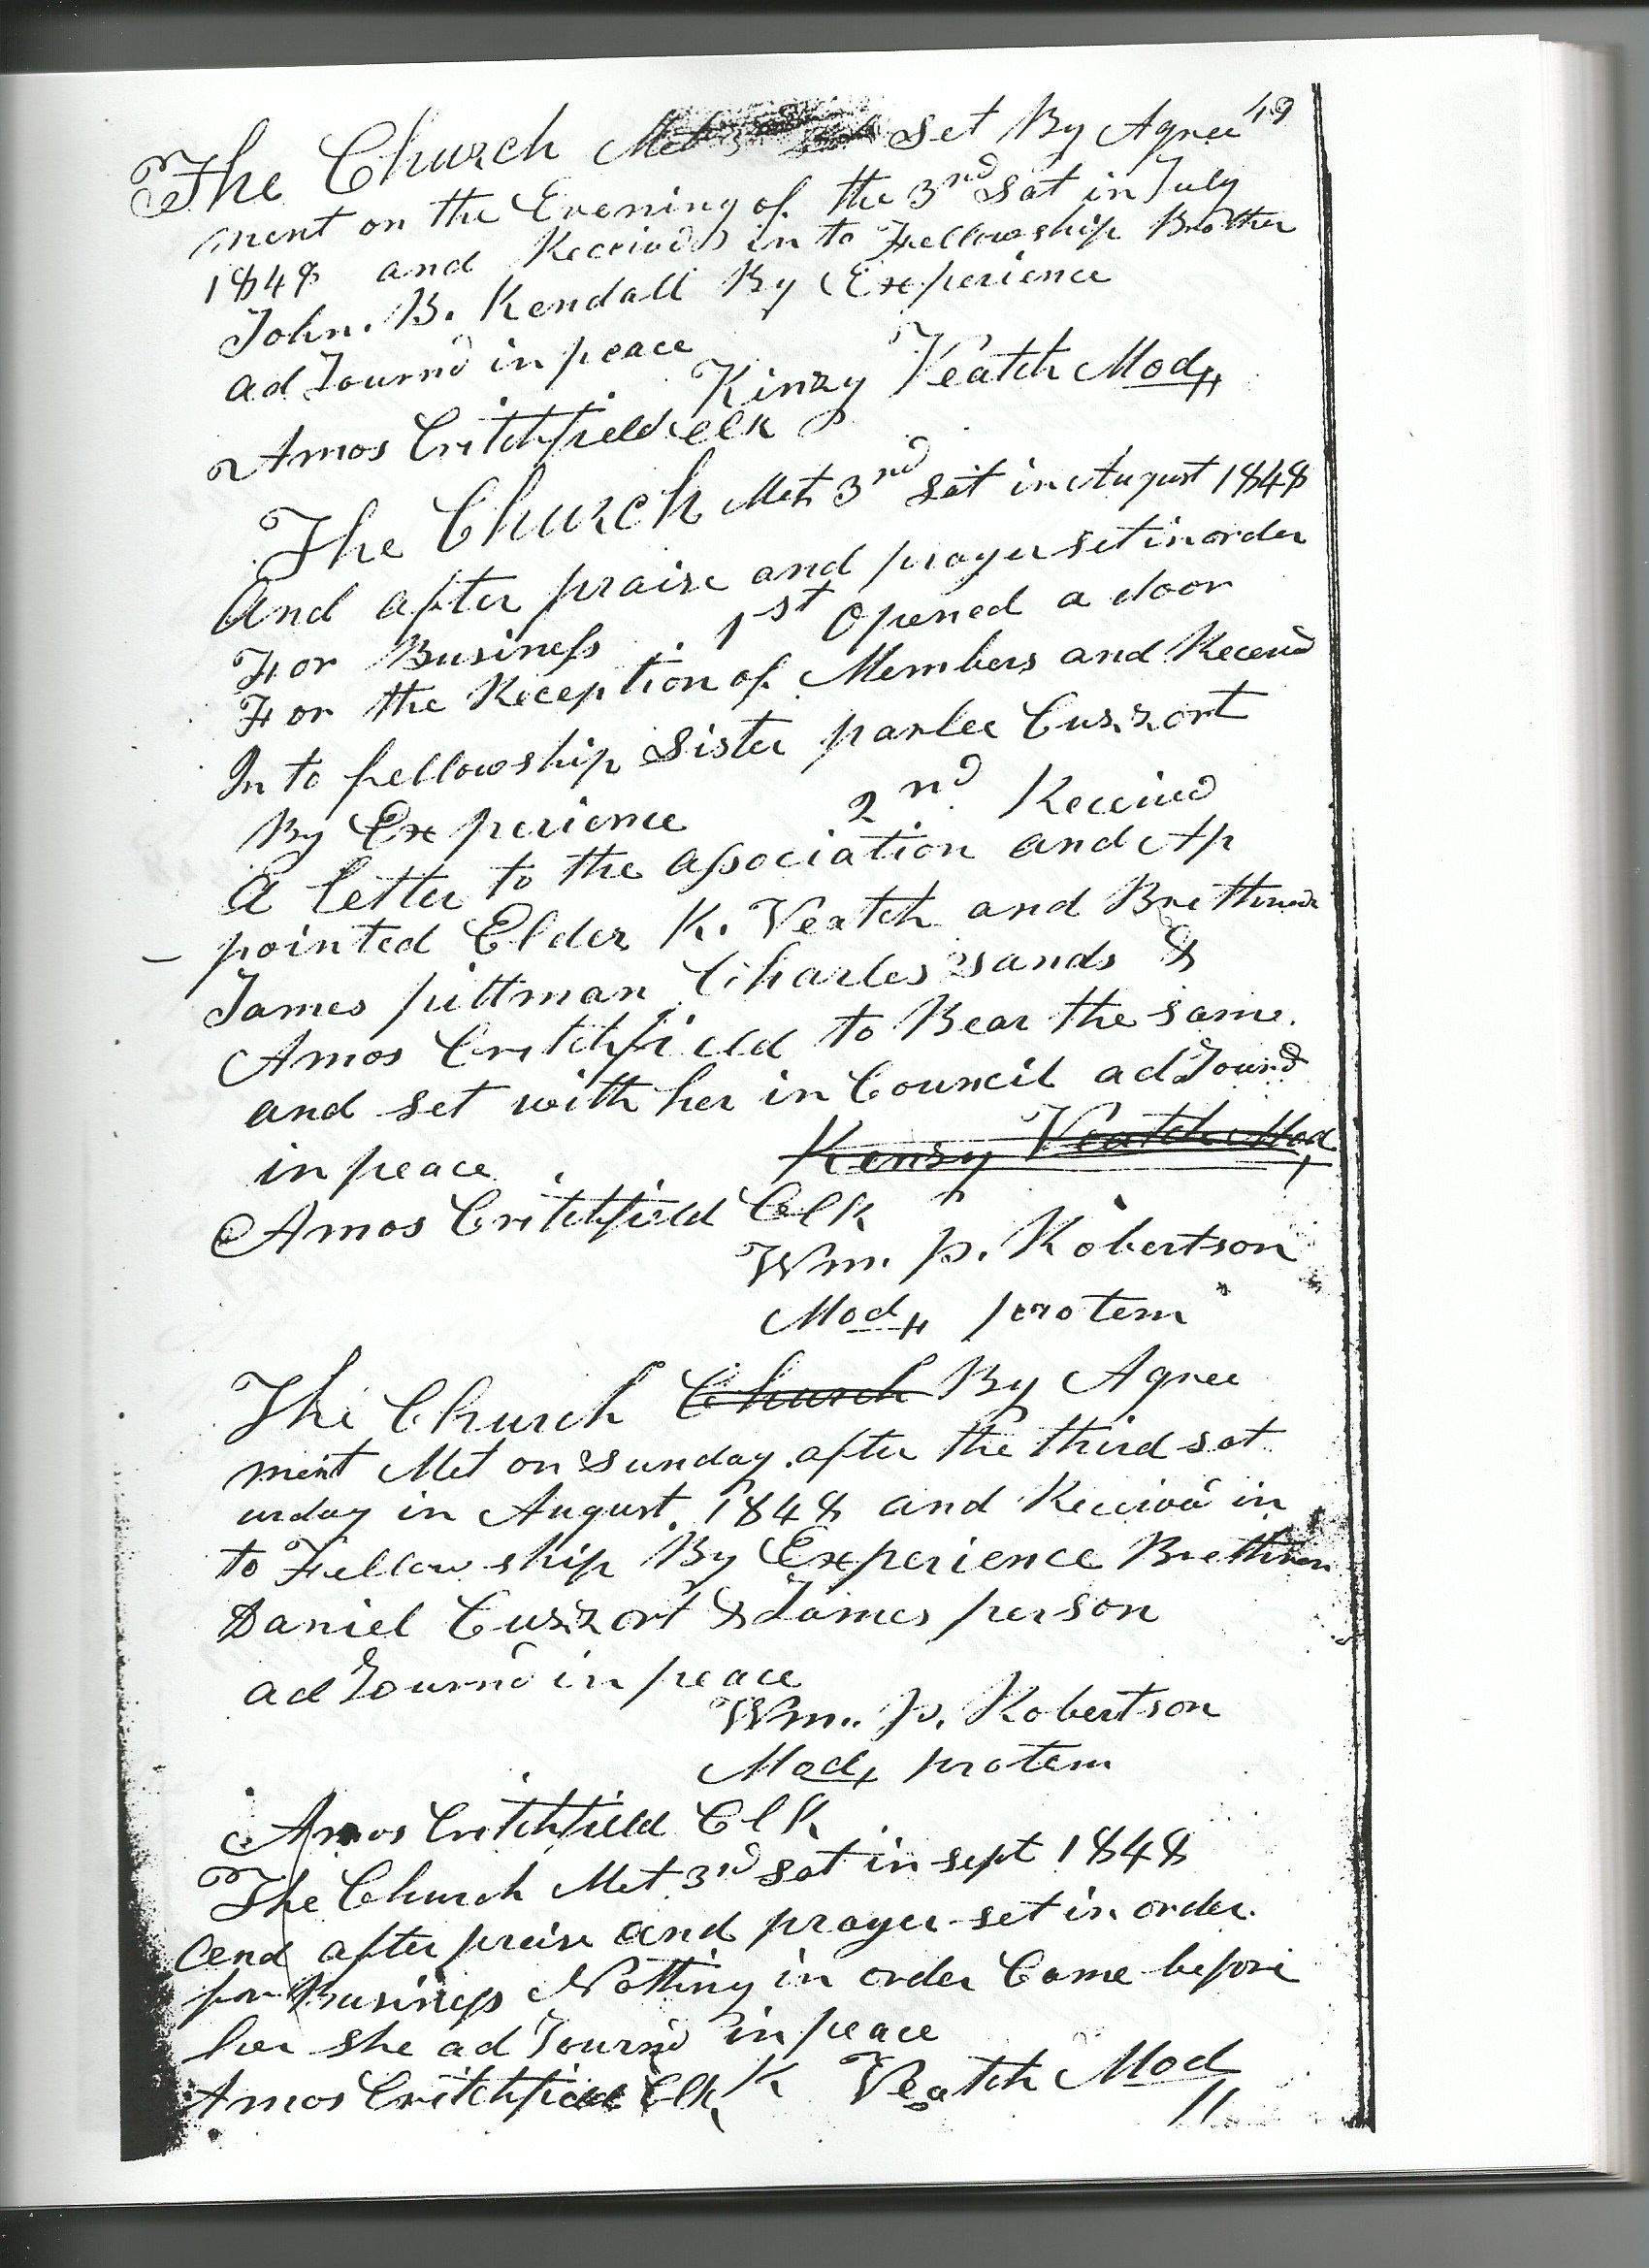 49
The Church Met Set By Agree
ment on the Evening of the 3rd Sat in July
1848 and Received in to Fellowship Brother
John. B. Kendall By Experience
ad Journd in peace
Kinzy Veatch Mod
Amos Critchfield Clk
The Church Met 3rd Sat in August 1848
And after praise and prayer set in order
For Business . 1st Opened a door
For the Reception of Members and Receivd
In to fellowship Sister parlee Cuzzort
By Experience 2nd Receivd
A letter to the association and Ap
pointed Elder K. Veatch and Brethren
James pittman Charles Sands &
Amos Critchfield to Bear the same.
and set with her in Council ad Journd
in peace
Kenzy Veatch Mod
Amos Critchfield Clk
Wm. p. Robertson
Mod protem
The Church Church By Agree
ment Met on Sunday after the third sat
urday in August. 1848 and Receivd in
to Fellow ship By Experience Brethren
Daniel Cuzzort & James person
ad Journd in peace
Wm.. p. Robertson
Mod protem
Amos Critchfield Clk
The Church Met 3rd Sat in sept 1848
and after praise and prayer set in order.
for Business Nothing in order Came before
her she ad Journd in peace
Amos Critchfield Clk K Veatch Mod